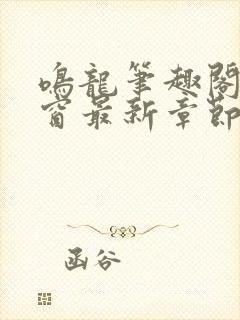 鳴龍筆趣閣
窗最新章節
函谷